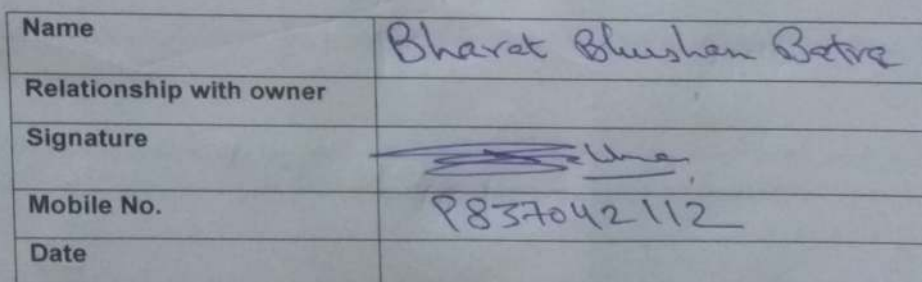 Name Bharat Bhushan Batra
Relationship with owner
Signature
Mobile No. 9837042112
Date